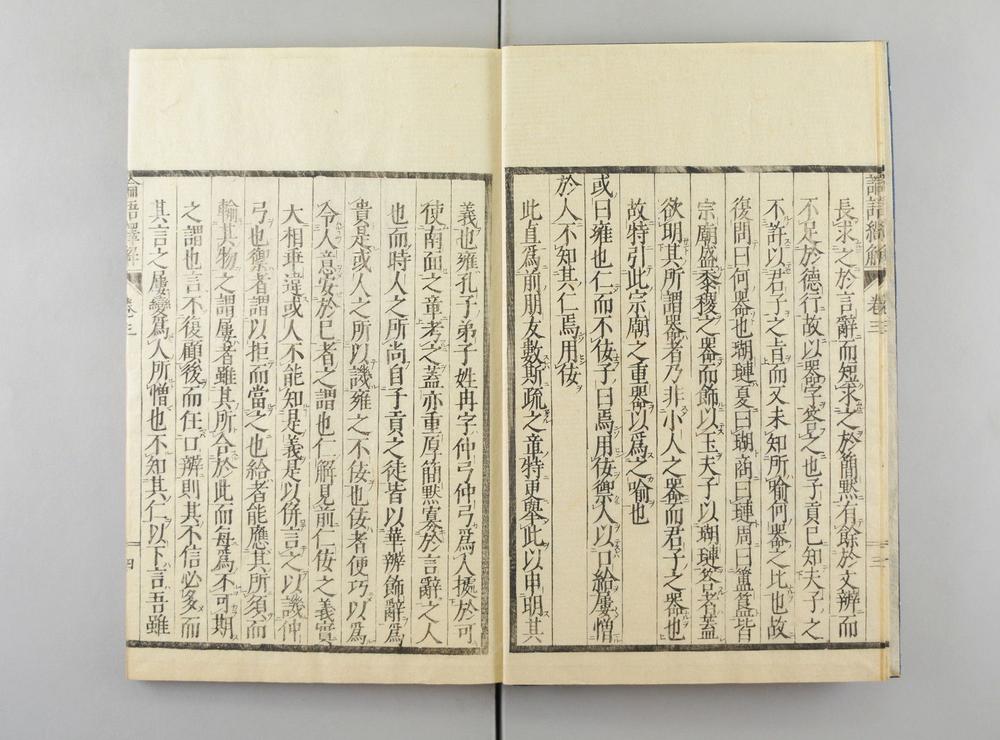 長求之於言辭而短求之於簡默有餘於文辨而
不足於德行故以器字答之也子貢已知夫子之
不許以君子之旨而又未知所喻何器之比也故
復問曰何器也瑚璉夏曰瑚商曰璉周曰簠簋皆
宗廟盛黍稷之器而飾以玉夫子以瑚璉答者蓋
欲明其所謂器者乃非小人之器而君子之器也
故特引此宗廟之重器以爲之喻也
或曰雍也仁而不佞子曰焉用佞禦人以口給屢憎
於人不知其仁焉用佞
此直爲前朋友數斯疏之章特更舉此以申明其
卷三
三
義也雍孔子弟子姓冉字仲弓仲弓爲人據於可
使南面之章考之蓋亦重厚簡默寡於言辭之人
也而時人之所尚自子貢之徒皆以華辨飾辭爲
貴是或人之所以譏雍之不佞也佞者便巧以爲
令人意安於已者之謂也仁解見前仁佞之義實
大相乖違或人不能知是義是以併言之以譏仲
弓也禦者謂以拒而當之也給者能應其所須而
輸其物之謂屢者雖其所合於此而每爲不可期
之謂也言不復顧後而任口辨則其不信必多而
其言之屢變爲人所憎也不知其仁以下言吾雖
卷三
四